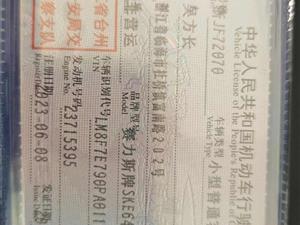 中华人民共和国机动车行驶
Vehicle License of the People's Republic of
JF72070
车辆类型 小型普通
Vehicle Type
矣方长
浙江省临海市杜桥镇富南路202号
非营运
品牌型号 赛力斯牌SKE64
Model
省台州
安局交
察支队
车辆识别代号 LM8F7E790PA011
发动机号码 23715395
Engine No.
注册日期 2023-06-08
发证日期